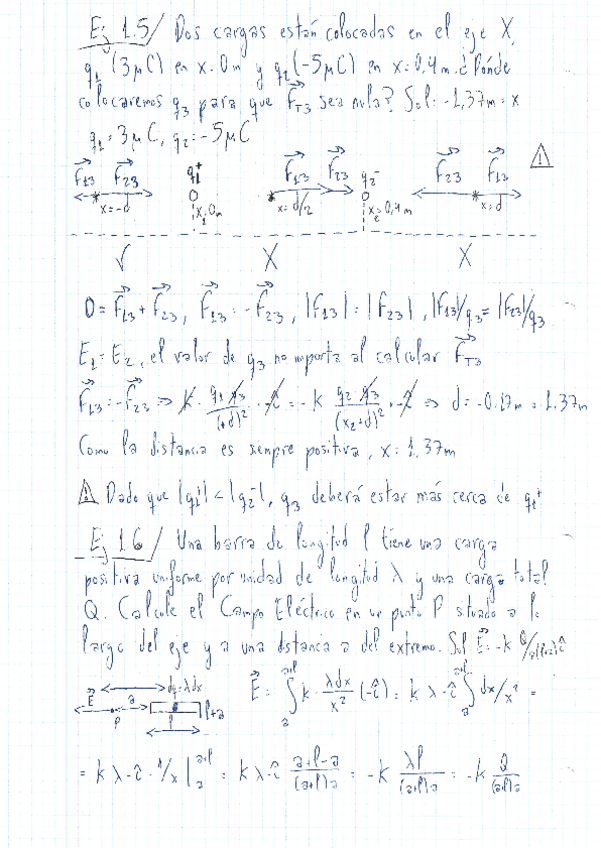 Ej 1.5/ Dos cargas están colocadas en el eje X,
q₁ (3μC) en x=0m y q₂(-5μC) en x=0,4m. ¿Dónde
colocaremos q₃ para que F⃗_T3 sea nula? Sol: -1,37m = x
q₁=3μC, q₂=-5μC
F⃗₁₃ F⃗₂₃ q₁⁺ F⃗₁₃ F⃗₂₃ q₂⁻ F⃗₂₃ F⃗₁₃ ⚠
x=-d x₁=0m x=d/2 x₂=0,4m x=d
✓ X X
0=F⃗₁₃+F⃗₂₃, F⃗₁₃=-F⃗₂₃, |F₁₃|=|F₂₃|, |F₁₃|/q₃=|F₂₃|/q₃
E₁=E₂, el valor de q₃ no importa al calcular F⃗_T3
F⃗₁₃=-F⃗₂₃ ⇒ k·(q₁·q₃)/(+d)²·-î=-k (q₂·q₃)/(x₂+d)²·-î ⇒ d=-0.17m = 1.37m
Como la distancia es siempre positiva, x=1,37m
⚠ Dado que |q₁⁺|<|q₂⁻|, q₃ deberá estar más cerca de q₁⁺
Ej 1.6/ Una barra de longitud l tiene una carga
positiva uniforme por unidad de longitud λ y una carga total
Q. Calcule el Campo Eléctrico en un punto P situado a lo
largo del eje y a una distancia a del extremo. Sol E⃗=-k
E⃗ a dq=λdx P l l+a
E⃗=∫ₐᵃ⁺ˡ k·λdx/x² (-î)=kλ·-î∫ₐᵃ⁺ˡ dx/x² =
=kλ·-î·1/x|ₐᵃ⁺ˡ = kλ·-î (a+l-a)/((a+l)a) = -k λl/((a+l)a) = -k Q/((a+l)a)